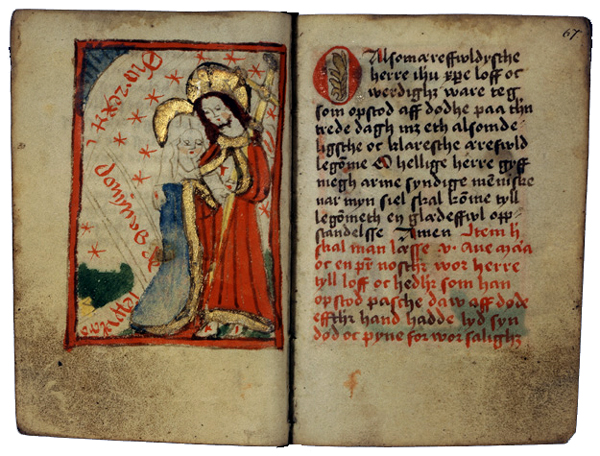 67
O Alsomæreffwldysthe
herre ihu xpe loff oc
werdighz ware teg
som opstod aff dodhe paa thn
trede dagh mz eth alsomde
ligsthe oc klaresthe ærefwld
legōme O hellige herre gyff
megh arme syndige mēniske
nar myn siel skal kōme tyll
legōmeth en glædeffwl opp
standelsse Amen Item h
skal man læsse v. Aue
oc en pr nosthr wor herre
tyll loff oc hedhr som han
opstod pasche daw aff dode
effthr hand hadde lyd syn
dod oc pyne for wor salighz